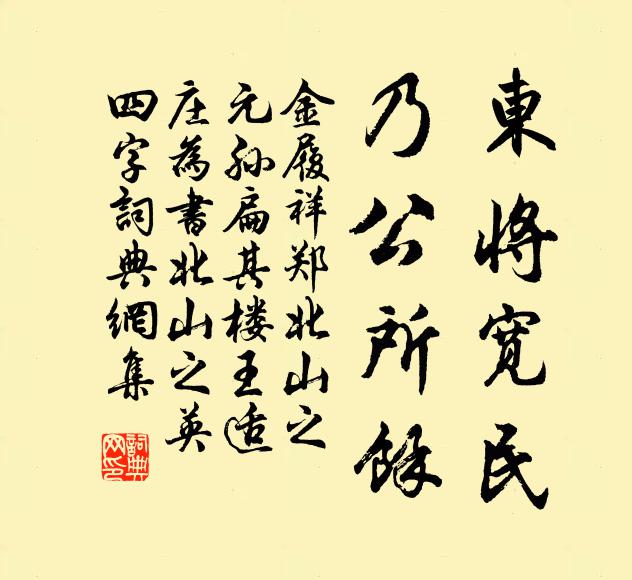 東將寬民
乃公所餘
金履祥郑北山之
元孙扁其楼王适
庄為書北山之英
四字詞典網集
詞典网印